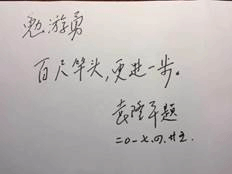 勉游勇
百尺竿头,更进一步。
袁隆平题
二〇一七.四.廿二.